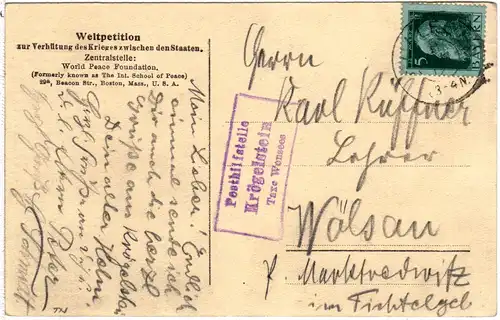 Weltpetition
zur Verhütung des Krieges zwischen den Staaten.
Zentralstelle:
World Peace Foundation.
(Formerly known as The Int. School of Peace)
29a, Beacon Str., Boston, Mass., U. S. A.
Mein Lieber! Endlich
einmal sende ich
Dir auch die herzl.
Grüße aus Krögelstein
Dein alter Holm
Peter
Schmidt
Posthilfstelle
Krögelstein
Taxe Wonsees
5
BAYERN
3-4N.
Herrn
Karl Küffner
Lehrer
Wölsau
P. Marktredwitz
im Fichtelgeb.